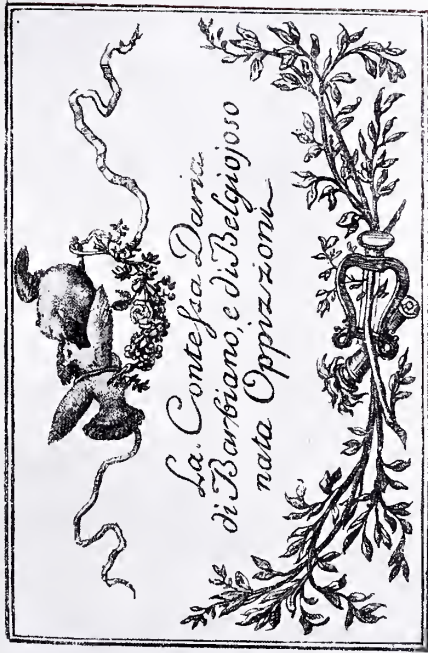 La Contessa Daria
di Barbiano, e di Belgiojoso
nata Oppizzoni